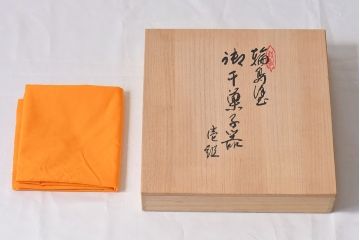 輪島塗
御干菓子器
壹組